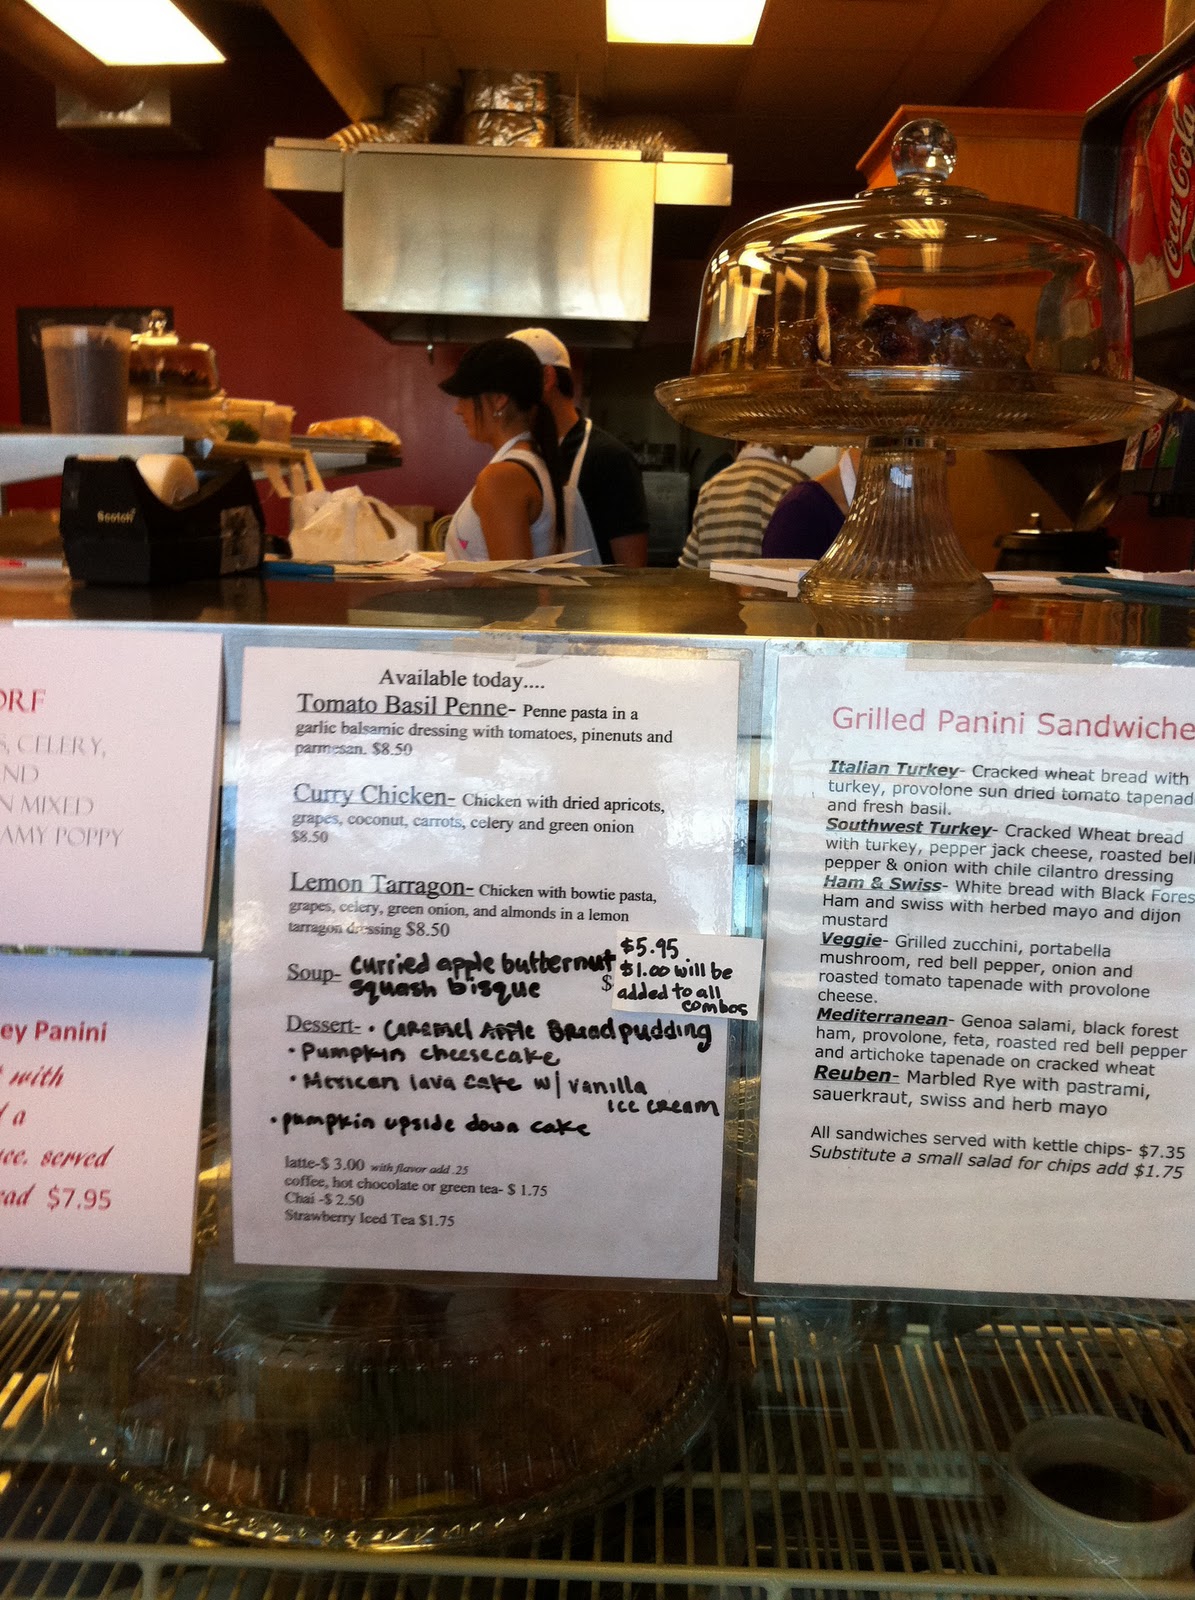 Coca-Cola
Scotch
ORF
S, CELERY,
ND
N MIXED
AMY POPPY
ey Panini
t with
d a
ce. served
ead $7.95
Available today....
Tomato Basil Penne- Penne pasta in a
garlic balsamic dressing with tomatoes, pinenuts and
parmesan. $8.50
Curry Chicken- Chicken with dried apricots,
grapes, coconut, carrots, celery and green onion
$8.50
Lemon Tarragon- Chicken with bowtie pasta,
grapes, celery, green onion, and almonds in a lemon
tarragon dressing $8.50
Soup- curried apple butternut
squash bisque $
$5.95
$1.00 will be
added to all
combos
Dessert- • Caramel Apple Bread pudding
• Pumpkin cheesecake
• Mexican lava cake w/ vanilla
ice cream
• pumpkin upside down cake
latte-$ 3.00 with flavor add .25
coffee, hot chocolate or green tea- $ 1.75
Chai -$ 2.50
Strawberry Iced Tea $1.75
Grilled Panini Sandwiche
Italian Turkey- Cracked wheat bread with
turkey, provolone sun dried tomato tapenad
and fresh basil.
Southwest Turkey- Cracked Wheat bread
with turkey, pepper jack cheese, roasted bell
pepper & onion with chile cilantro dressing
Ham & Swiss- White bread with Black Fores
Ham and swiss with herbed mayo and dijon
mustard
Veggie- Grilled zucchini, portabella
mushroom, red bell pepper, onion and
roasted tomato tapenade with provolone
cheese.
Mediterranean- Genoa salami, black forest
ham, provolone, feta, roasted red bell pepper
and artichoke tapenade on cracked wheat
Reuben- Marbled Rye with pastrami,
sauerkraut, swiss and herb mayo
All sandwiches served with kettle chips- $7.35
Substitute a small salad for chips add $1.75